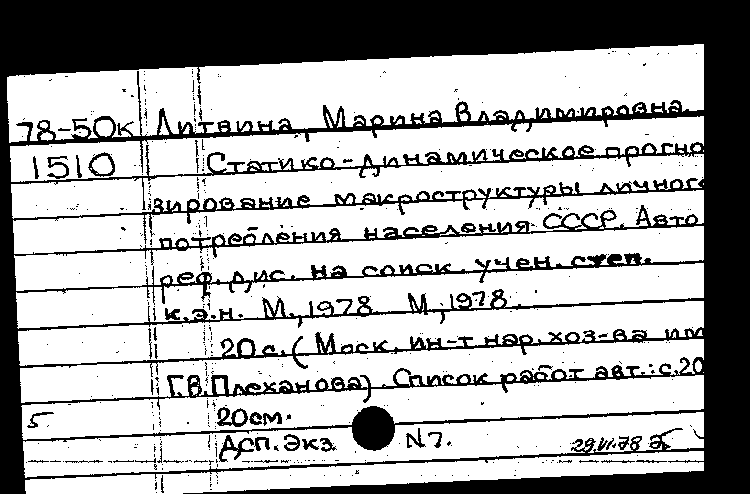 78-50к Литвина, Марина Владимировна.
1510 Статико-динамическое прогно
зирование макроструктуры личного
потребления населения СССР. Авто
реф. дис. на соиск. учен. степ.
к.э.н. М., 1978 М., 1978.
20 с. (Моск. ин-т нар. хоз-ва им
Г.В.Плеханова). Список работ авт.: с.20
5 20см.
ДСП. Экз. N7. 29.VI.78